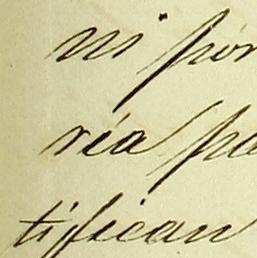 ni por
ria pa
tifican